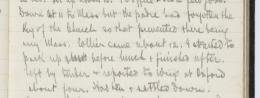 Down at 11 to Mass but the padre had forgotten the
Key of the Church so that prevented there being
any Mass. Collier came about 12. & started to
pack up before lunch & finished after.
left by tender & reported to Wing at
about four. Had tea & settled down.